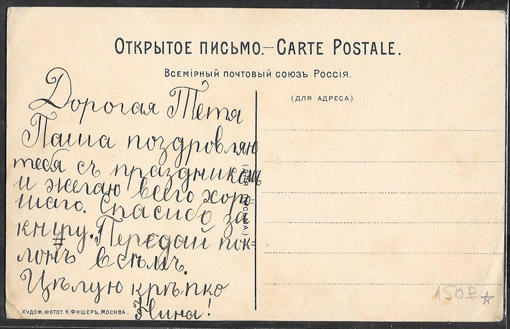 ОТКРЫТОЕ ПИСЬМО.—CARTE POSTALE.
Всемірный почтовый союзъ Россія.
(ДЛЯ АДРЕСА.)
Дорогая Тетя
Паша поздровляю
тебя съ праздникомъ
и желаю всего хоро
шаго. Спасибо за
книгу. Передай пок-
лонъ всѣмъ.
Цѣлую крѣпко
Нина!
ХУДОЖ. ФОТОТ. К. ФИШЕРЪ, МОСКВА.
150₽